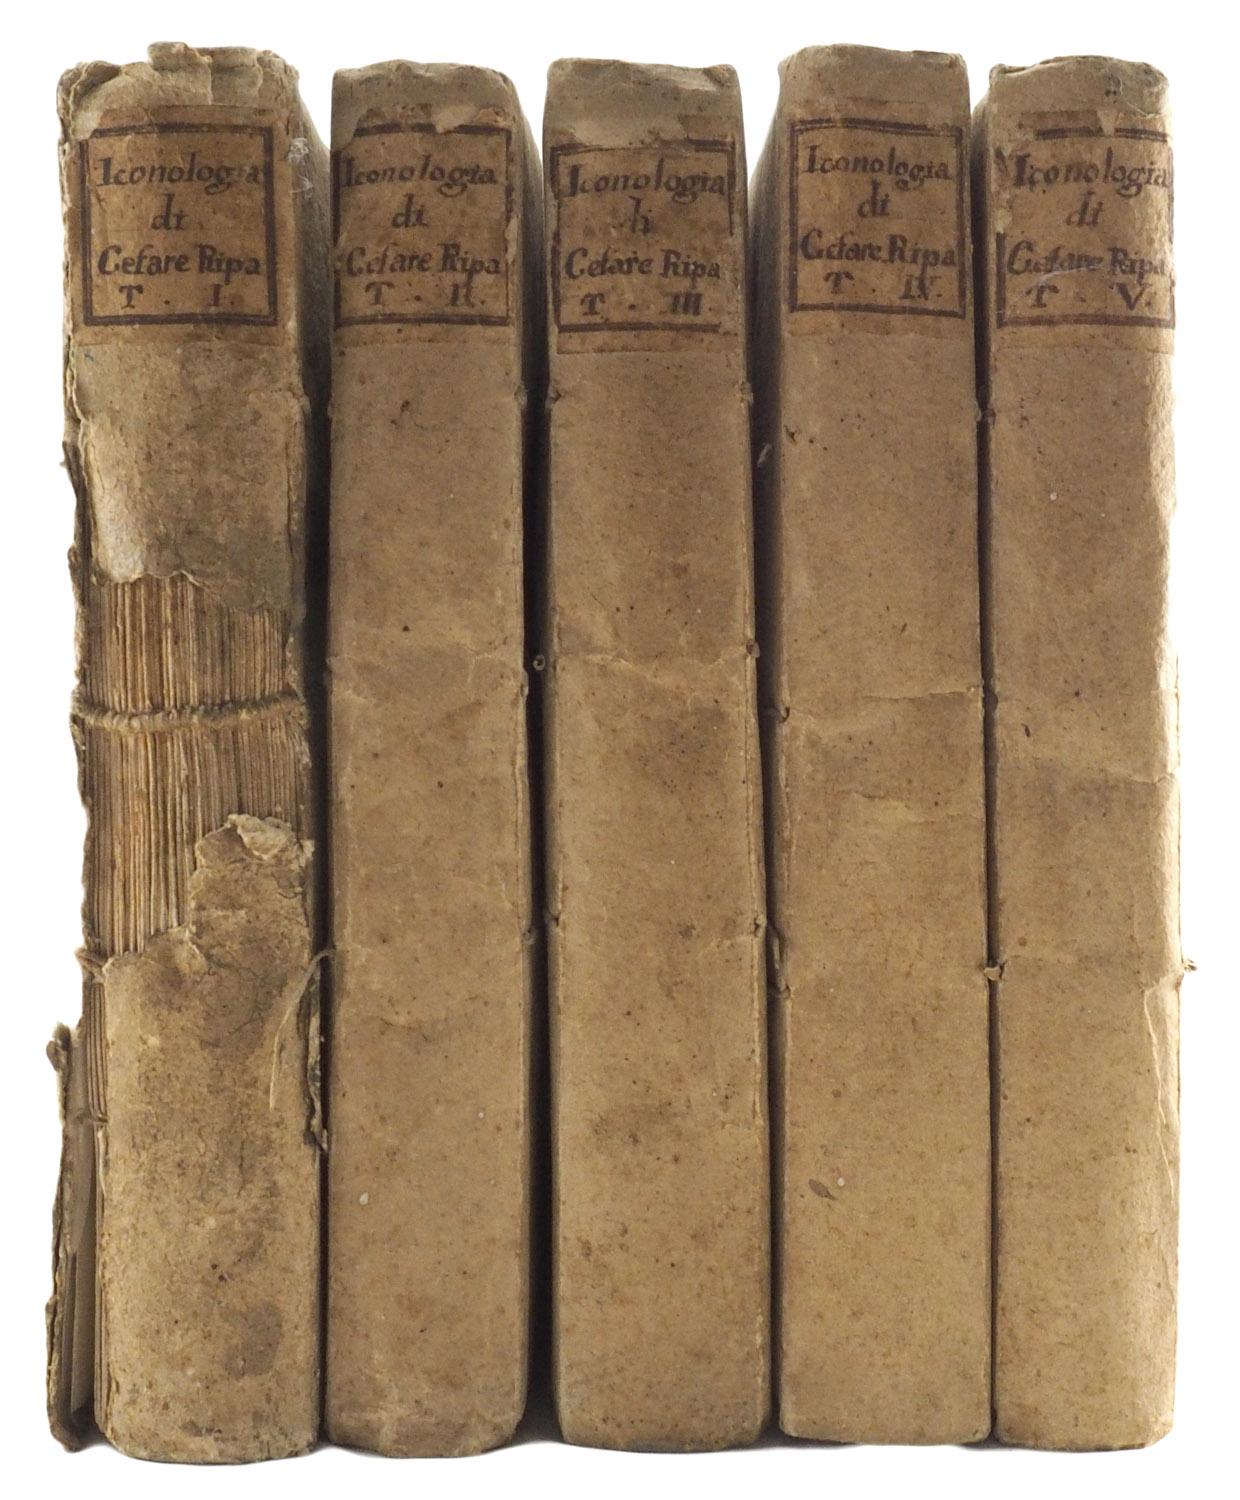 Iconologia
di
Cesare Ripa
T . I.
Iconologia
di
Cesare Ripa
T . II.
Iconologia
di
Cesare Ripa
T . III.
Iconologia
di
Cesare Ripa
T . IV.
Iconologia
di
Cesare Ripa
T . V.